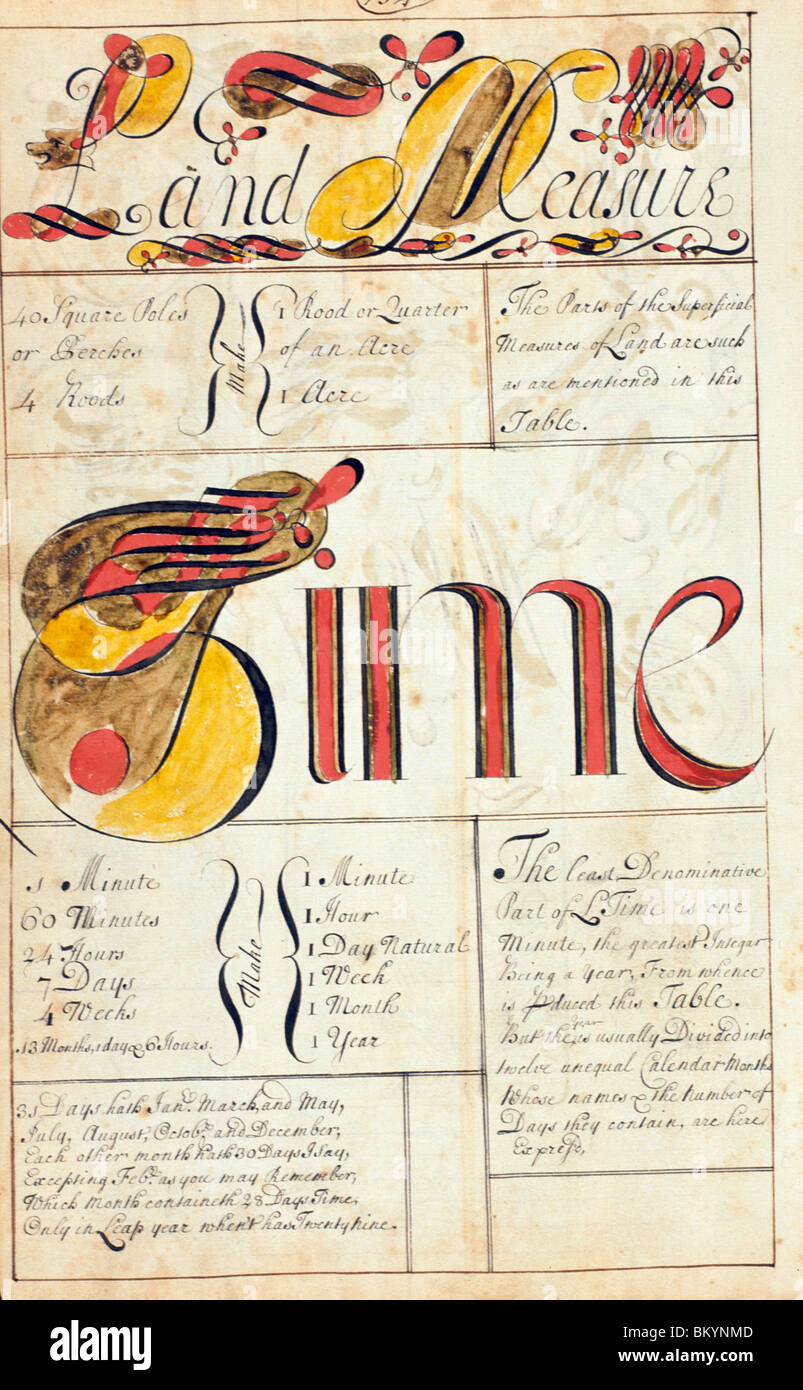 Land Measure
40 Square Poles
or Perches
4 Roods
Make
1 Rood or Quarter
of an Acre
1 Acre
The Parts of the Superficial
Measures of Land are such
as are mentioned in this
Table.
Time
1 Minute
60 Minutes
24 Hours
7 Days
4 Weeks
13 Months, 1 day & 6 Hours.
Make
1 Minute
1 Hour
1 Day Natural
1 Week
1 Month
1 Year
The least Denominative
Part of Time is one
Minute, the greatest Integar
Being a Year, From whence
is produced this Table.
But the year is usually Divided into
twelve unequal Calendar Months
Whose names & the Number of
Days they contain, are here
Expressd,
31 Days hath Janr. March, and May,
July, August, Octobr. and December,
Each other month hath 30 Days I say,
Excepting Febr. as you may Remember,
Which Month containeth 28 Days Time,
Only in Leap year when't has Twenty Nine.
alamy
Image ID: BKYNMD
www.alamy.com